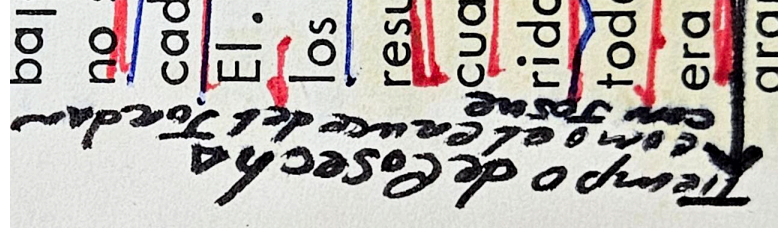 bal
no
cad
El.
los
resu
cua
rido
todo
era
gra
Tiempo de Cosecha
como el cruce del Jordan
con Josue